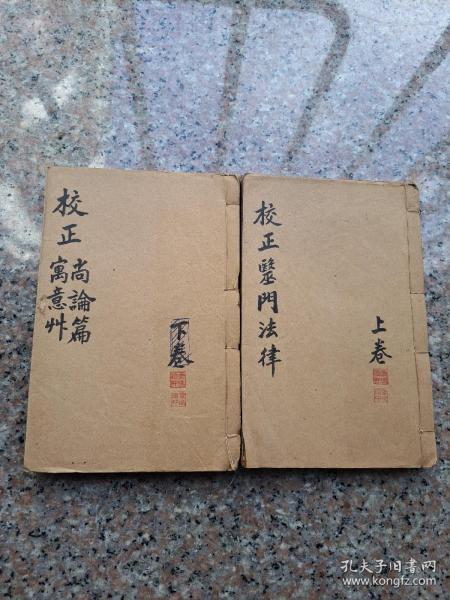 校正
尚論篇
寓意艸
下卷
校正毉門法律
上卷
孔夫子旧书网
www.kongfz.com